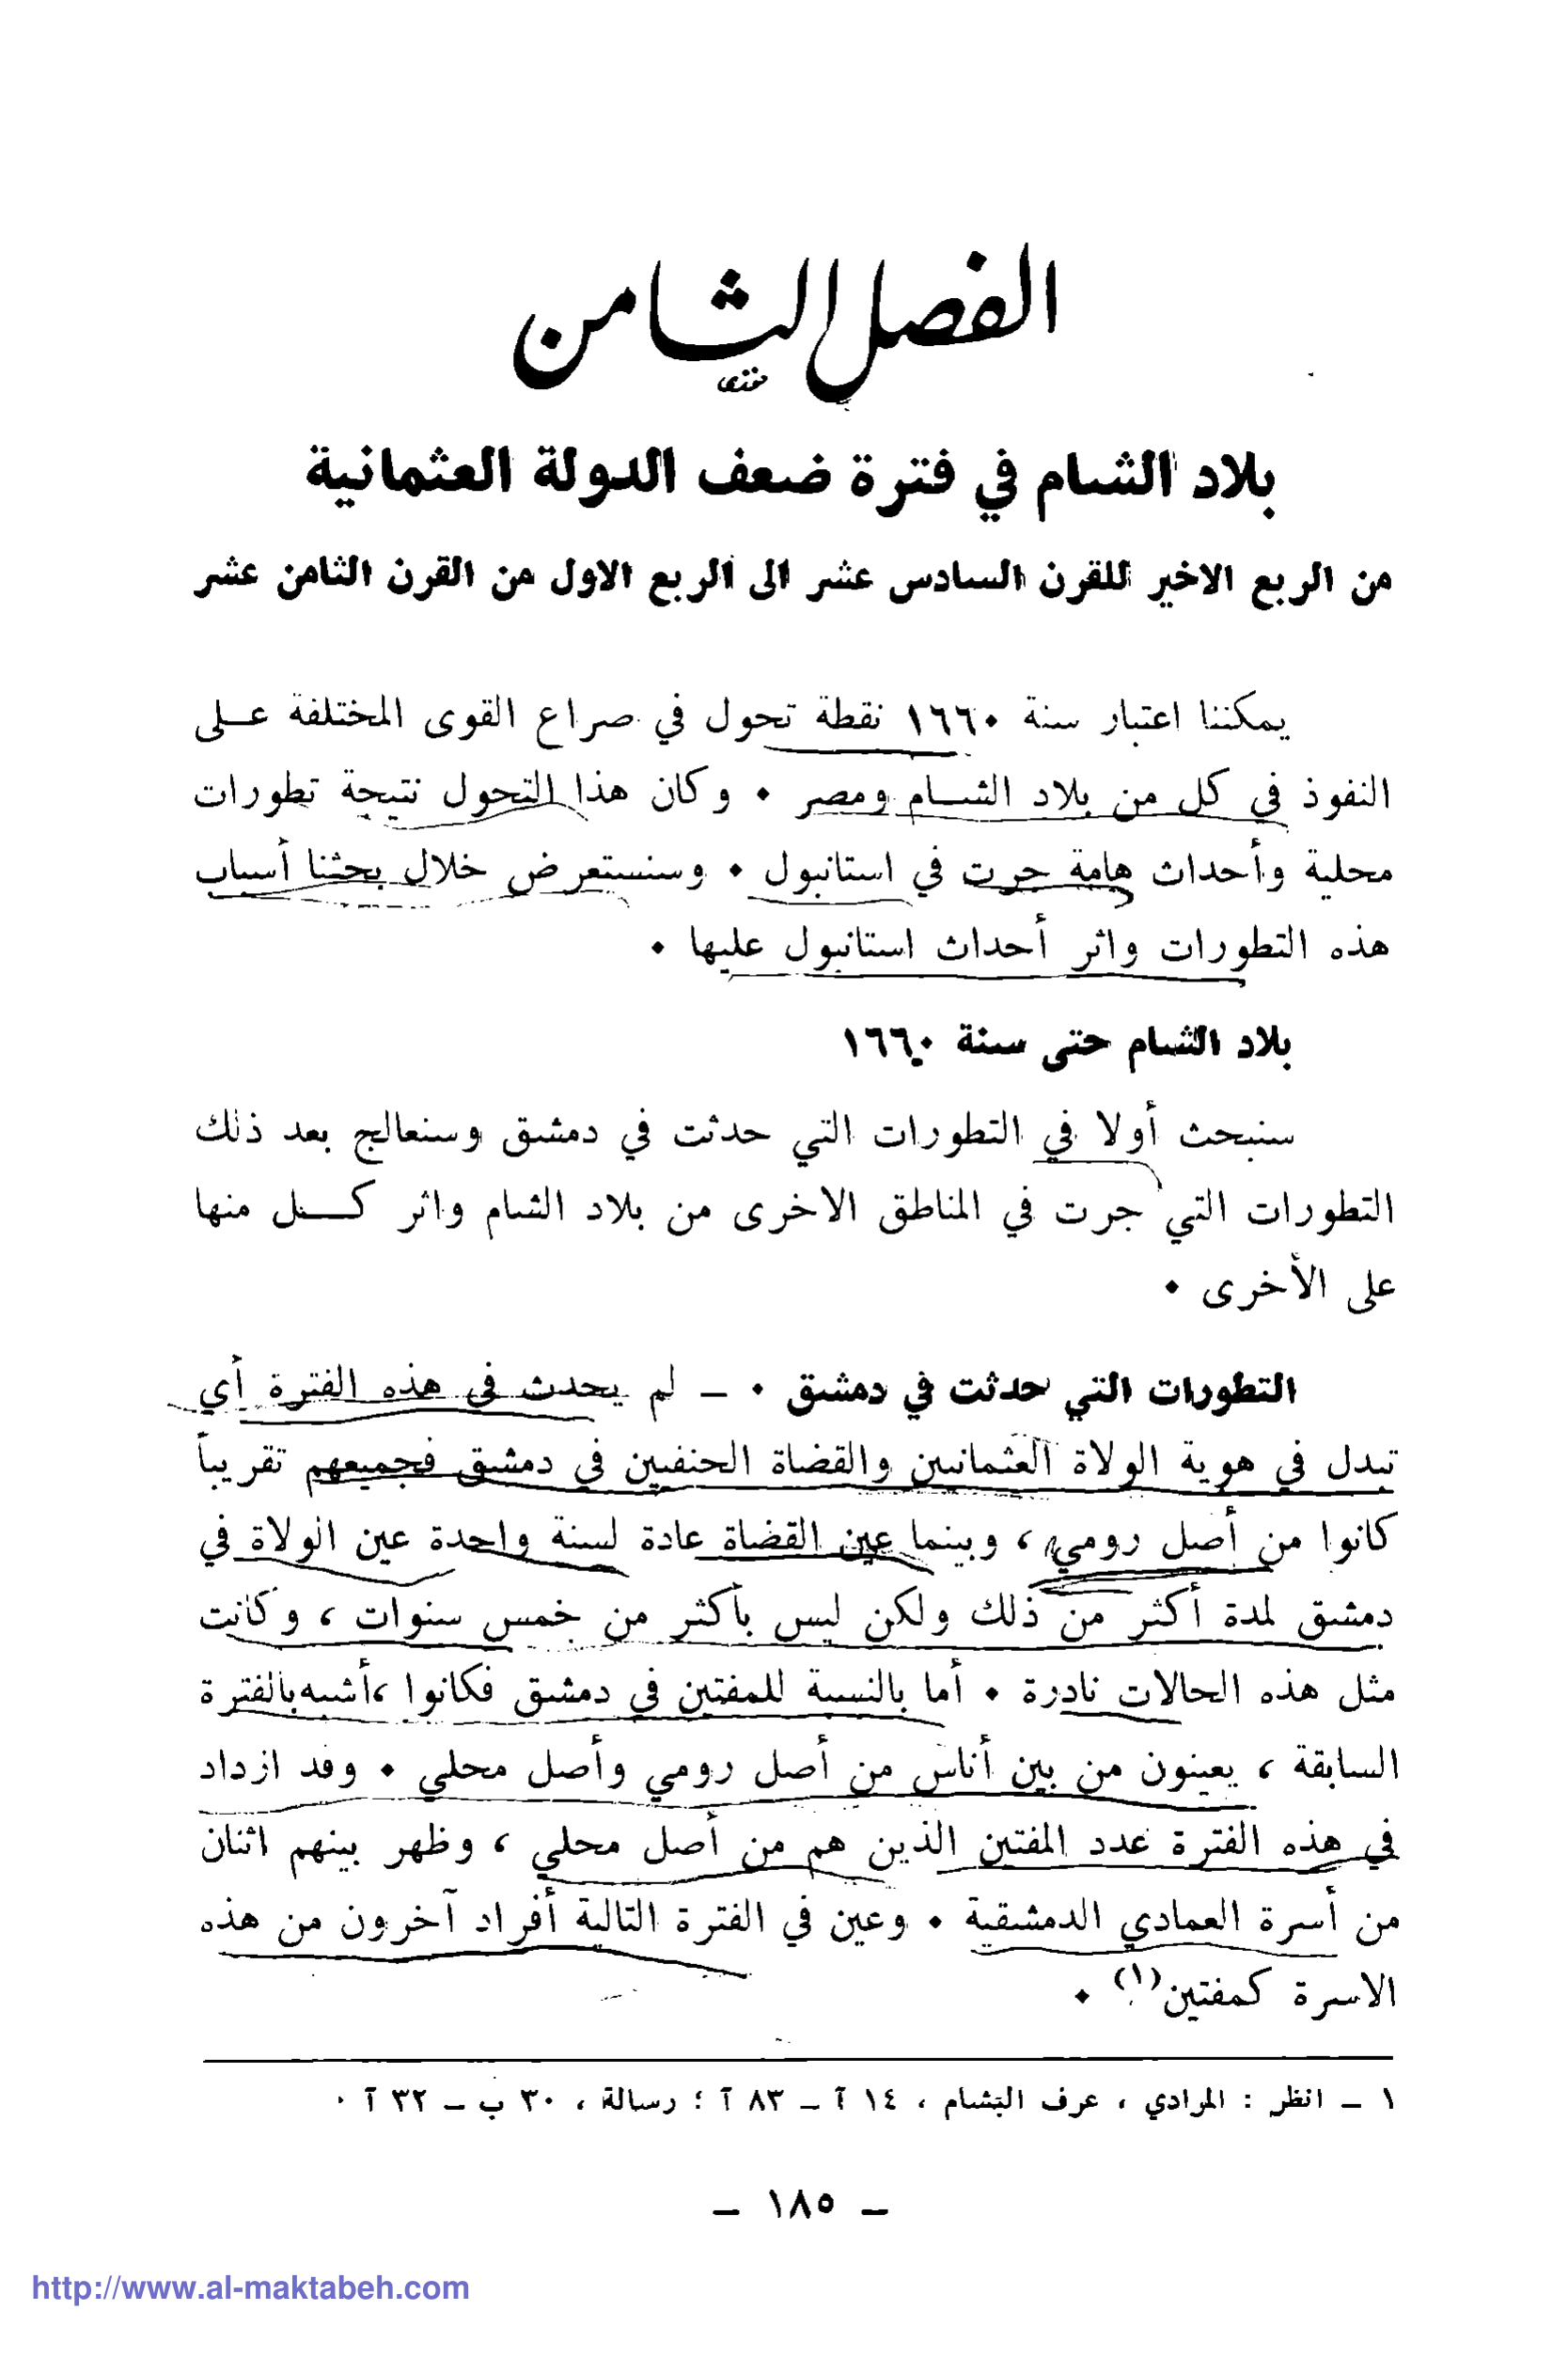 الفصل الثامن
بلاد الشام في فترة ضعف الدولة العثمانية
من الربع الاخير للقرن السادس عشر الى الربع الاول من القرن الثامن عشر
يمكننا اعتبار سنة ١٦٦٠ نقطة تحول في صراع القوى المختلفة عـلى
النفوذ في كل من بلاد الشــام ومصر ٠ وكان هذا التحول نتيجة تطورات
محلية وأحداث هامة جرت في استانبول ٠ وسنستعرض خلال بحثنا أسباب
هذه التطورات واثر أحداث استانبول عليها ٠
بلاد الشام حتى سنة ١٦٦٠
سنبحث أولا في التطورات التي حدثت في دمشق وسنعالج بعد ذلك
التطورات التي جرت في المناطق الاخرى من بلاد الشام واثر كـــل منها
على الأخرى ٠
التطورات التي حدثت في دمشق ٠ ــ لم يحدث في هذه الفترة أي
تبدل في هوية الولاة العثمانيين والقضاة الحنفيين في دمشق فجميعهم تقريباً
كانوا من أصل رومي ، وبينما عين القضاة عادة لسنة واحدة عين الولاة في
دمشق لمدة أكثر من ذلك ولكن ليس بأكثر من خمس سنوات ، وكانت
مثل هذه الحالات نادرة ٠ أما بالنسبة للمفتين في دمشق فكانوا ،أشبه بالفترة
السابقة ، يعينون من بين أناس من أصل رومي وأصل محلي ٠ وقد ازداد
في هذه الفترة عدد المفتين الذين هم من أصل محلي ، وظهر بينهم اثنان
من أسرة العمادي الدمشقية ٠ وعين في الفترة التالية أفراد آخرون من هذه
الاسرة كمفتين(١) ٠
١ ــ انظر : المرادي ، عرف البشام ، ١٤ آ ــ ٨٣ آ ؛ رسالة ، ٣٠ ب ــ ٣٢ آ ٠
ــ ١٨٥ ــ
http://www.al-maktabeh.com